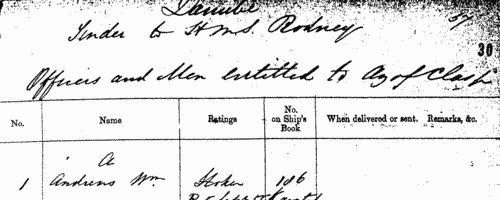 Danube 57
Tender to H M S. Rodney
30
Officers and Men entitled to Azof Clasp
No. Name Ratings No. on Ship's Book When delivered or sent. Remarks, &c.
A
1 Andrews Wm Stoker 186